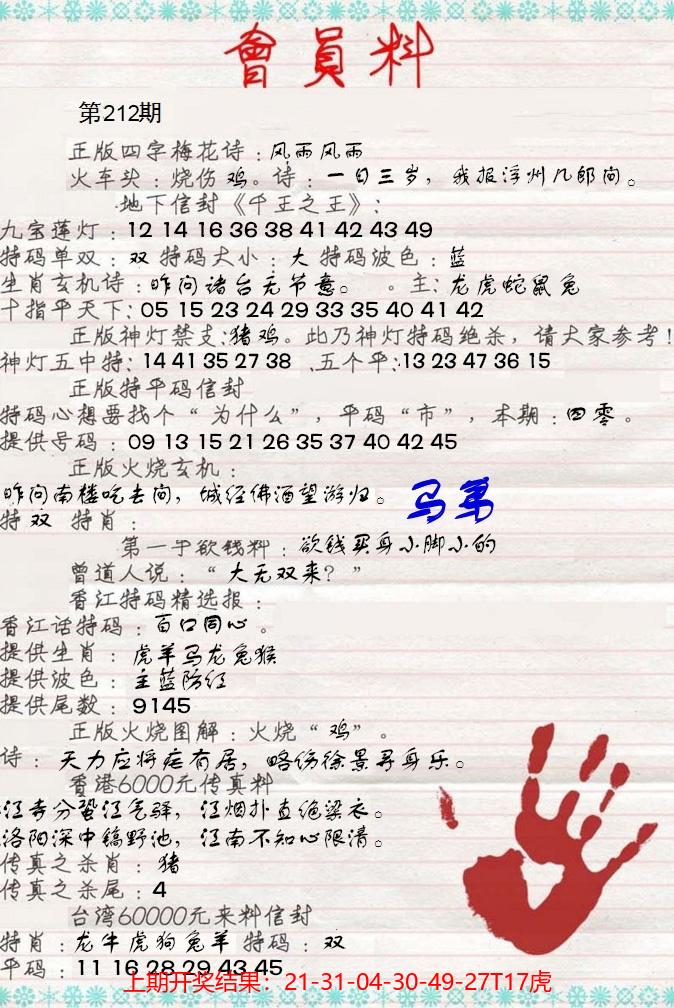 會員料
第212期
正版四字梅花诗：风雨风雨
火车头：烧伤 鸡。诗：一日三岁，我报浮州几郎问。
地下信封《千王之王》：
九宝莲灯：12 14 16 36 38 41 42 43 49
特码单双：双 特码大小：大 特码波色：蓝
生肖玄机诗：昨问诸台无节意。 。主：龙虎蛇鼠兔
十指平天下：05 15 23 24 29 33 35 40 41 42
正版神灯禁支：猪鸡。此乃神灯特码绝杀，请大家参考！
神灯五中特：14 41 35 27 38 、五个平：13 23 47 36 15
正版特平码信封
特码心想要找个“为什么”，平码“市”，本期：四零。
提供号码：09 13 15 21 26 35 37 40 42 45
正版火烧玄机：
昨问南楼吃去问，城经佛酒望游归。 马第
特 双 特肖：
第一手欲钱料：欲钱买身小脚小的
曾道人说：“大无双来？”
香江特码精选报：
香江话特码：百口同心。
提供生肖：虎羊马龙兔猴
提供波色：主蓝防红
提供尾数：9145
正版火烧图解：火烧“鸡”。
诗：天力应将疟有居，略伤徐景寻身乐。
香港6000元传真料
江寺分蛰江气驿，江烟扑直绝梁衣。
洛阳深中镐野池，江南不知心限清。
传真之杀肖：猪
传真之杀尾：4
台湾60000元来料信封
特肖：龙牛虎狗兔羊 特码：双
平码：11 16 28 29 43 45
上期开奖结果：21-31-04-30-49-27T17虎